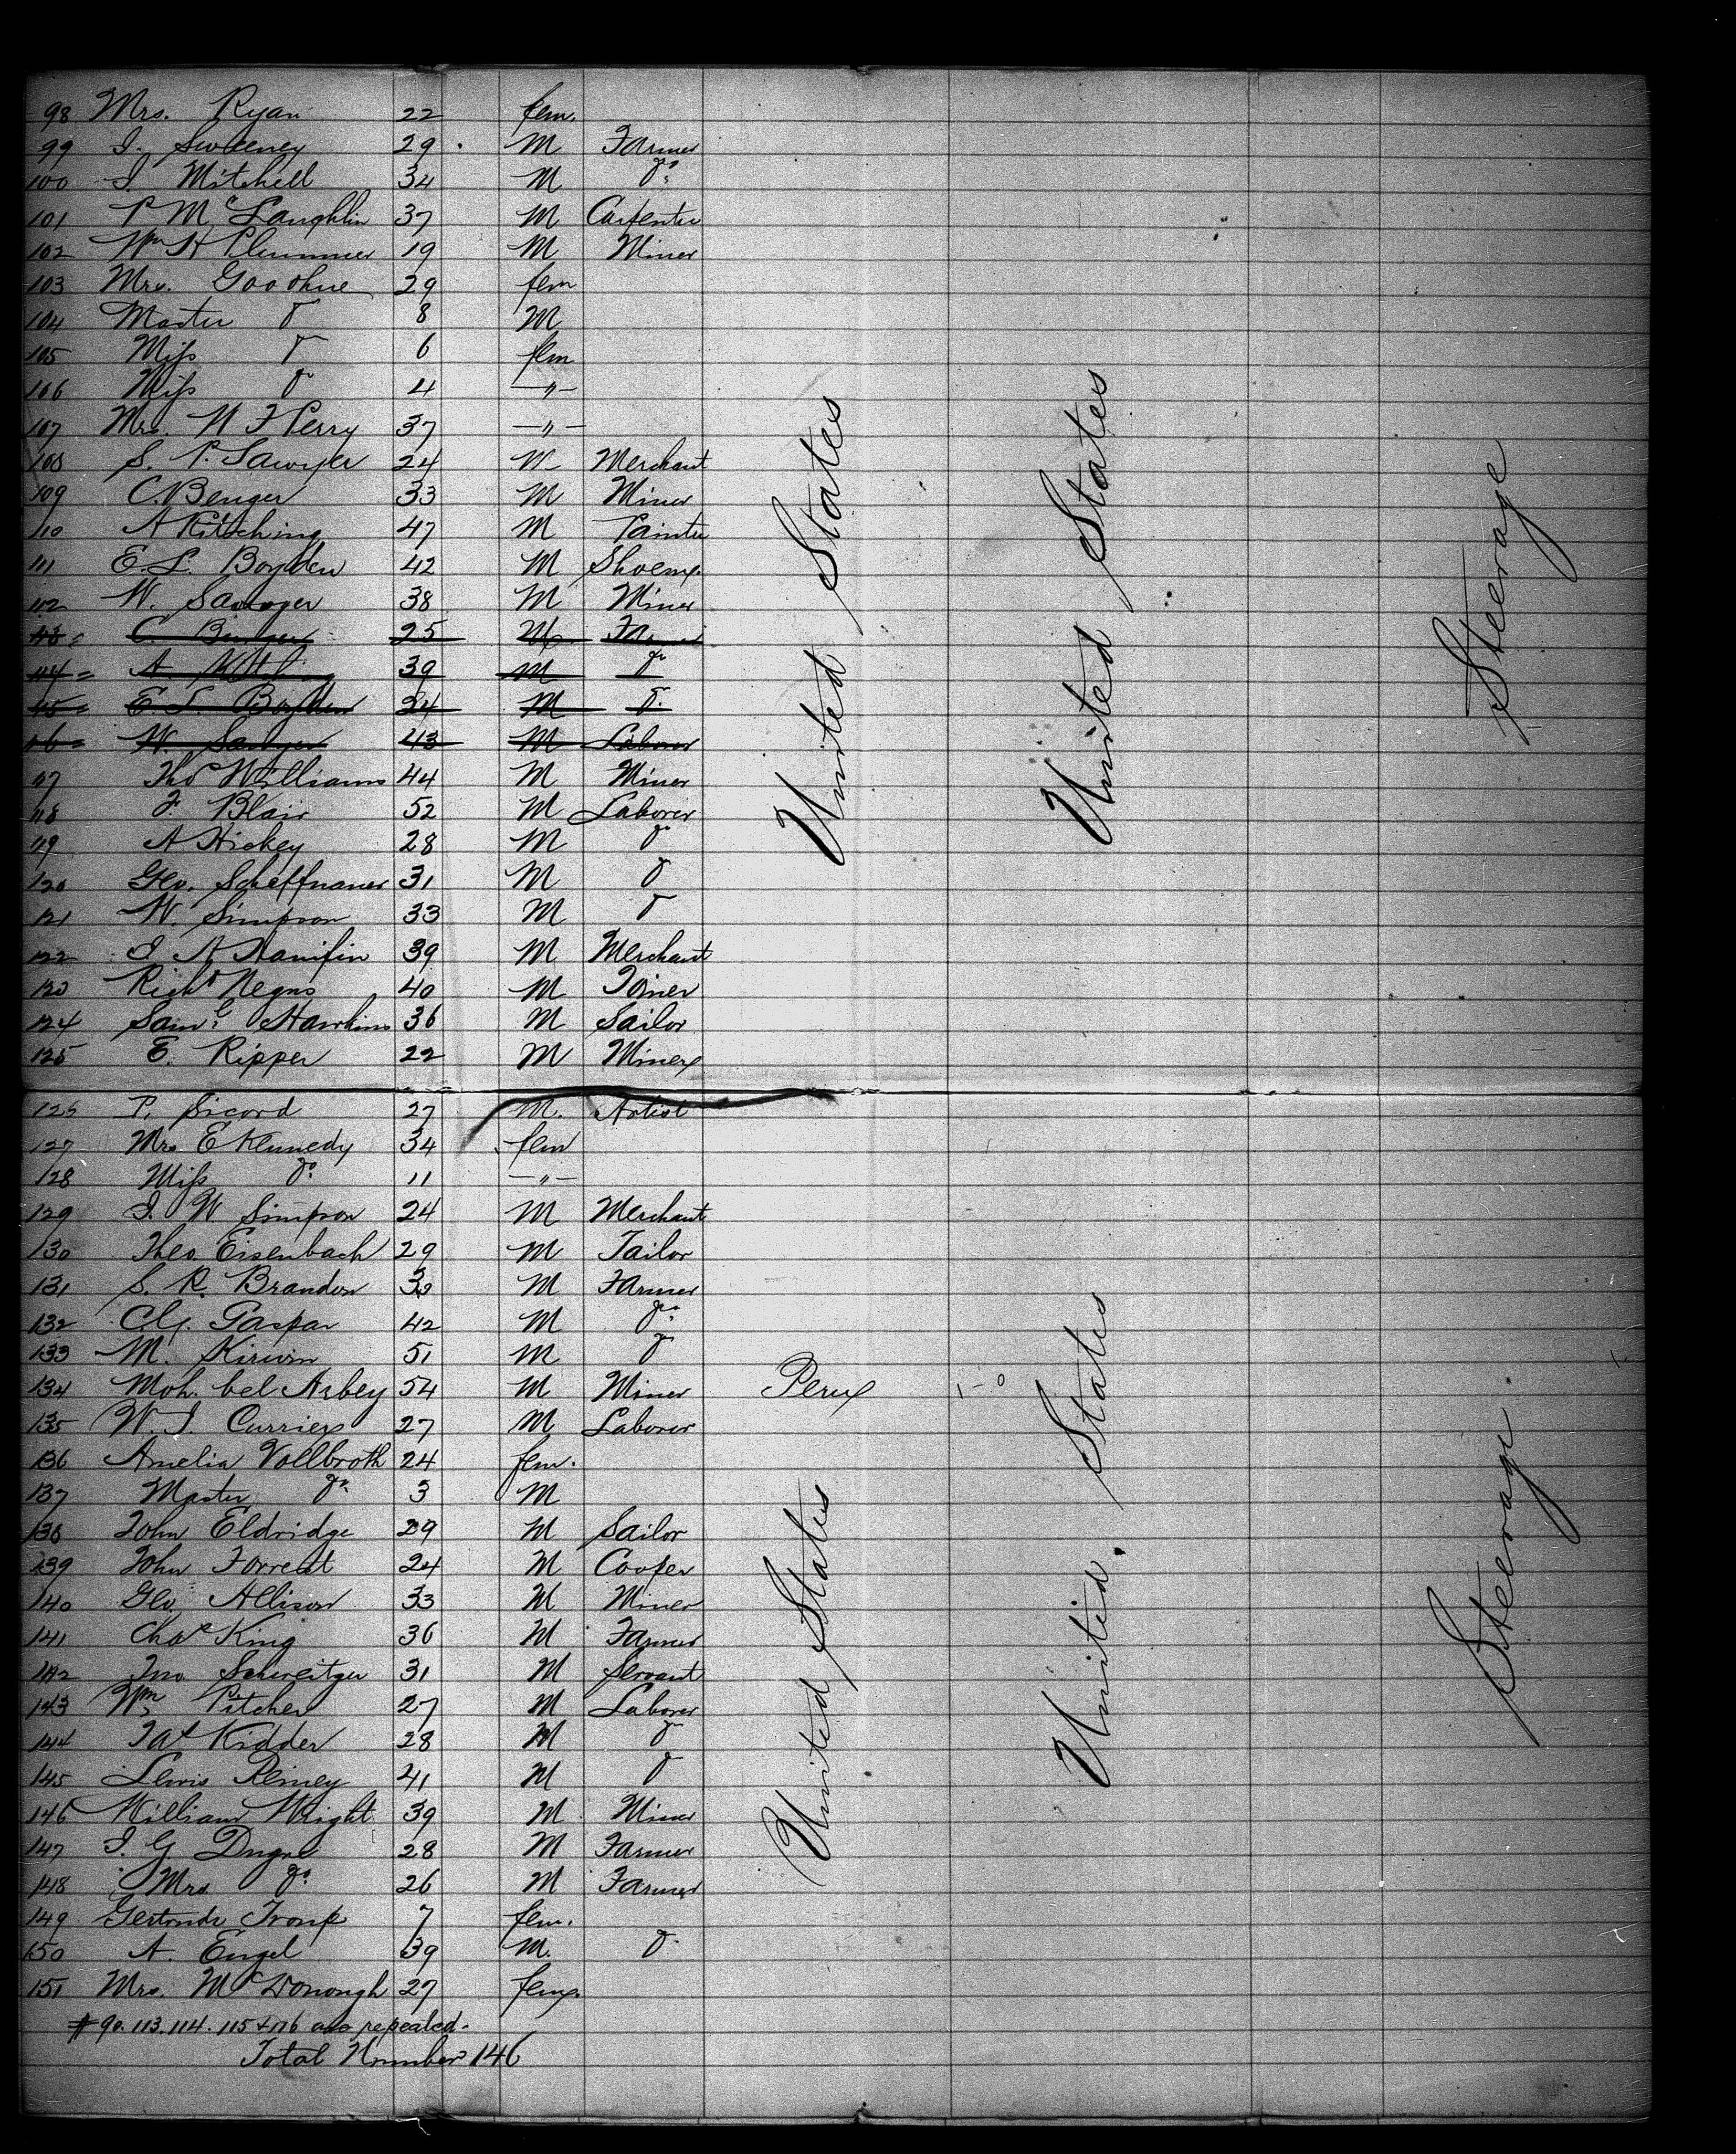 98 Mrs. Ryan 22 fem.
99 J. Sweeney 29 M Farmer
100 J. Mitchell 34 M do
101 P McLaughlin 37 M Carpenter
102 Wm H Plummer 19 M Miner
103 Mrs. Goodhue 29 fem
104 Master do 8 M
105 Miss do 6 fem
106 Miss do 4 —"—
107 Mrs. N F Perry 37 —"—
108 S. P. Sawyer 24 M Merchant
109 C. Benger 33 M Miner
110 A Kitsching 47 M Painter
111 E. L. Boyden 42 M Shoem.
112 W. Sawyer 38 M Miner
113 C. Benger 25 M Far
114 A 39 M do
115 E. L. Boyden 24 M do
116 W. Sawyer 43 M Laborer
117 Thos Williams 44 M Miner
118 F. Blair 52 M Laborer
119 A Hickey 28 M do
120 Geo. Scheffnauer 31 M do
121 W. Simpson 33 M do
122 J. A Hanifin 39 M Merchant
123 Richd Negus 40 M Joiner
124 Saml Hawkins 36 M Sailor
125 E. Ripper 22 M Miner
United States United States Steerage
126 P. Sicord 27 M. Artist
127 Mrs E Kennedy 34 fem
128 Miss do 11 —"—
129 J. W Simpson 24 M Merchant
130 Theo. Eisenbach 29 M Tailor
131 S. R. Brandon 30 M Farmer
132 C. G. Gaspar 42 M do
133 M. Kirwin 51 M do
134 Moh. bel Arbey 54 M Miner Peru
135 W. J. Currier 27 M Laborer
136 Amelia Vollbroth 24 fem.
137 Master do 3 M
138 John Eldridge 29 M Sailor
139 John Forrest 24 M Cooper
140 Geo. Allison 33 M Miner
141 Chas King 36 M Farmer
142 Jno. Schweitzer 31 M Servant
143 Wm Pitcher 27 M Laborer
144 Jas Kidder 28 M do
145 Lewis Remey 41 M do
146 William Wright 39 M Miner
147 J. G 28 M Farmer
148 Mrs do 26 M Farmer
149 Gertrude 7 fem.
150 A. Engel 39 M. do
151 Mrs. McDonough 27 fem.
United States United States Steerage
# 90. 113. 114. 115 & 116 are repealed.
Total Number 146